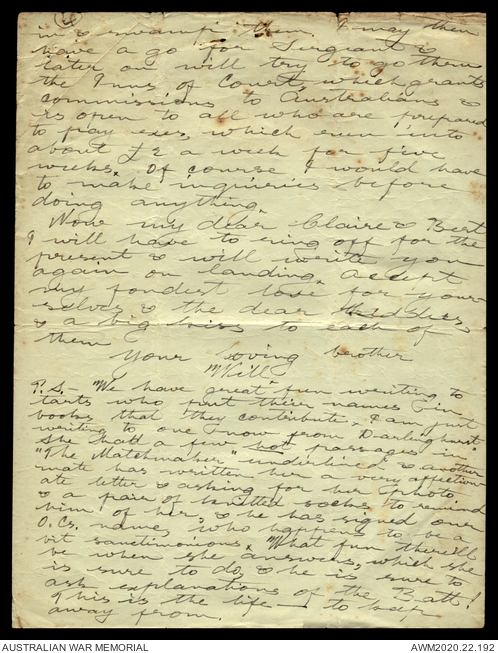 4
in & swamp them. I may then
have a go for Sergeant &
later on will try to go thru
the Inns of Court, which grants
commissions to Australians &
is open to all who are prepared
to pay exes, which run into
about £2 a week for five
weeks. Of course I would have
to make inquiries before
doing anything.
Now my dear Claire & Bert
I will have to ring off for the
present & will write you
again on landing. Accept
my fondest love for your-
selves & the dear kiddies
& a big kiss to each of
them
Your loving brother
Will
P.S. - We have great fun writing to
tarts who put their names in
books that they contribute, I am just
writing to one now from Darlinghurst
She had a few hot passages in
"The Matchmaker" underlined & another
mate has written her a very affection
ate letter & asking for her photo
& a pair of knitted socks to remind
him of her, & he has signed our
O.Cs. name, who happens to be a
bit sanctimonious. What fun there'll
be when she answers, which she
is sure to do & he is sure to
ask explanations of the Batt!
This is the life — to keep
away from.
AUSTRALIAN WAR MEMORIAL
AWM2020.22.192